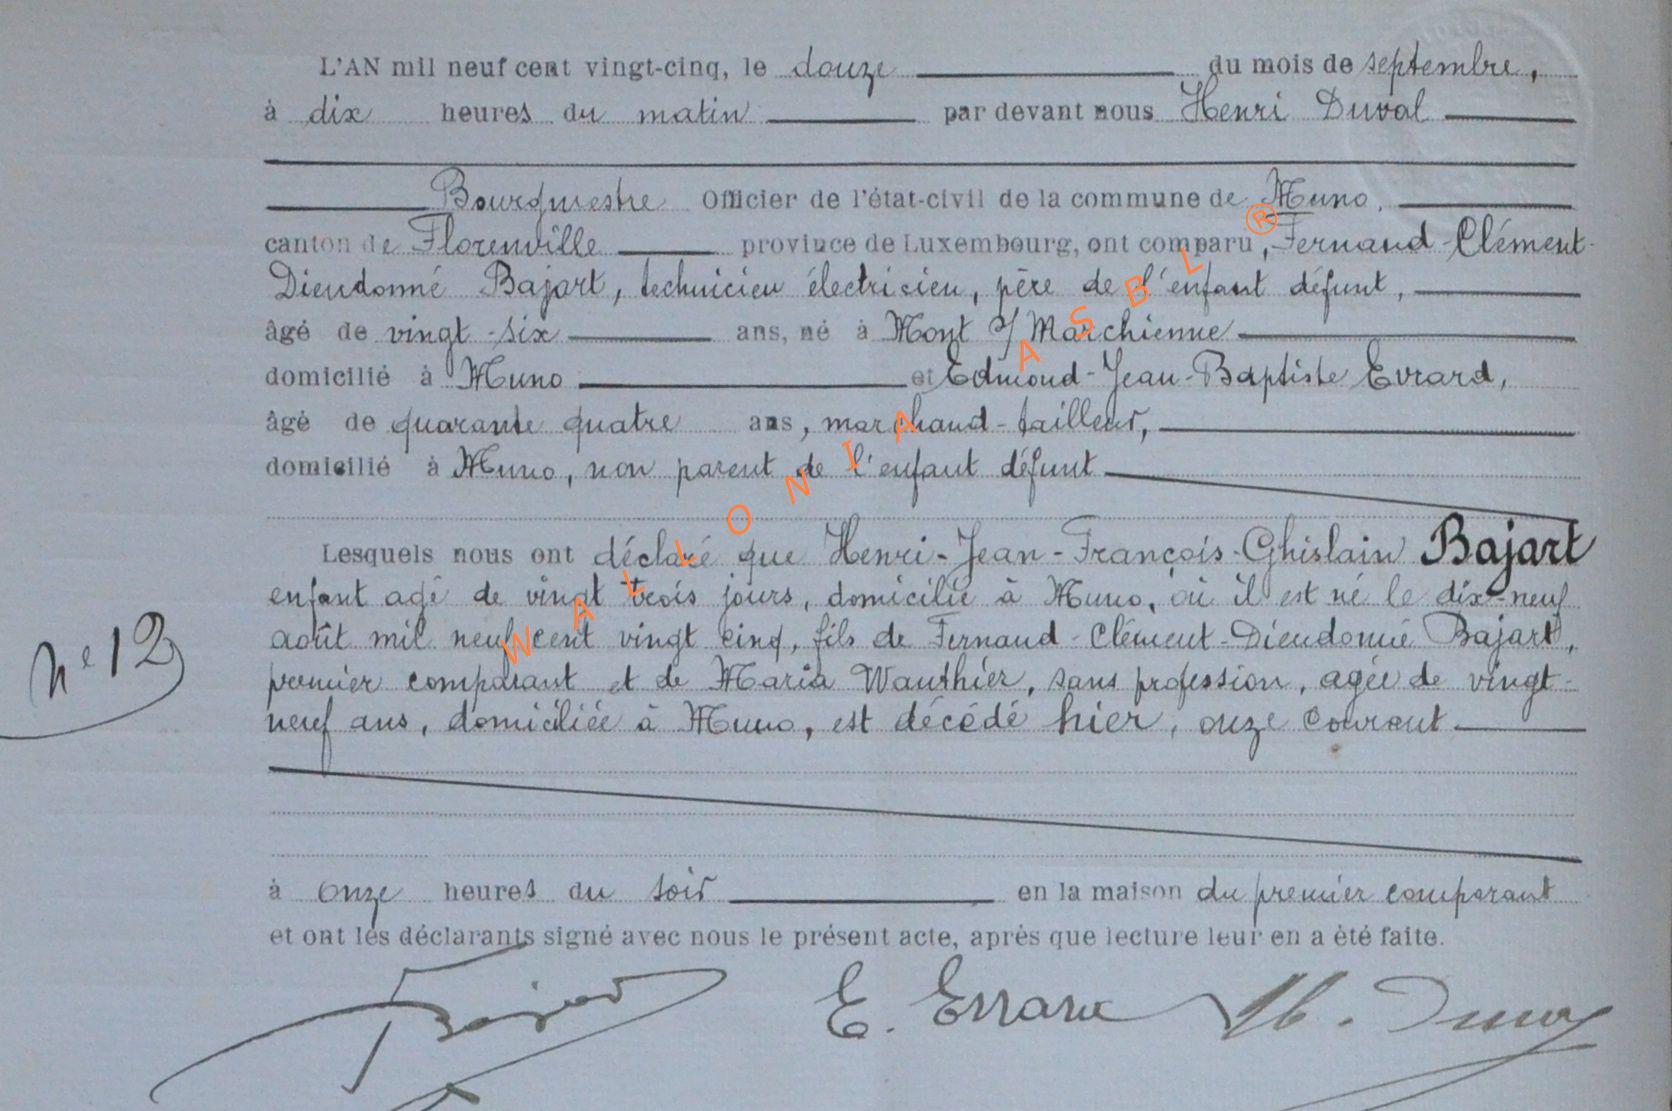 L'AN mil neuf cent vingt-cinq, le douze du mois de septembre,
à dix heures du matin par devant nous Henri Duval
Bourgmestre Officier de l'état-civil de la commune de Muno,
canton de Florenville province de Luxembourg, ont comparu, Fernand-Clément-
Dieudonné Bajart, technicien électricien, père de l'enfant défunt,
âgé de vingt-six ans, né à Mont s/ Marchienne
domicilié à Muno et Edmond-Jean-Baptiste Evrard,
âgé de quarante quatre ans, marchand-tailleur,
domicilié à Muno, non parent de l'enfant défunt
Lesquels nous ont déclaré que Henri-Jean-François-Ghislain Bajart
enfant agé de vingt trois jours, domicilié à Muno, où il est né le dix-neuf
août mil neuf cent vingt cinq, fils de Fernand-Clément-Dieudonné Bajart,
premier comparant et de Maria Wauthier, sans profession, agée de vingt-
neuf ans, domiciliée à Muno, est décédé hier, onze courant
N° 12
à onze heures du soir en la maison du premier comparant
et ont les déclarants signé avec nous le présent acte, après que lecture leur en a été faite.
Bajart E. Evrard H. Duval
WALLONIA ASBL ®